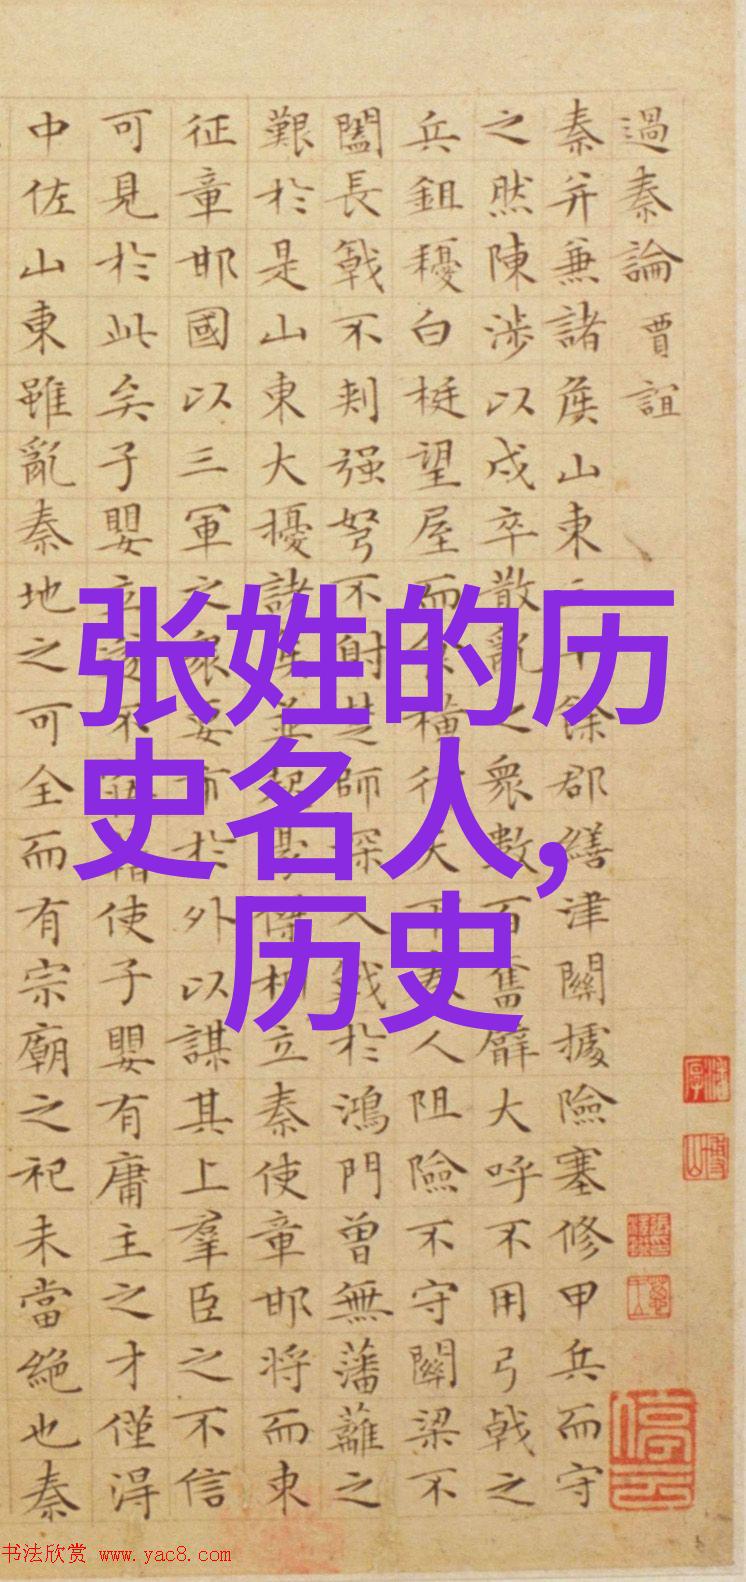 張姓的历
史名人,
历史
過秦論 賈誼
秦并兼諸侯山東三十餘郡繕津關據險塞修甲兵而守
之然陳涉以戍卒散亂之衆數百奮臂大呼不用弓戟之
兵鉏耰白梃望屋而食橫行天下秦人阻險不守關梁不
闔長戟不刺强弩不射楚師深入戰於鴻門曾無藩籬之
艱於是山東大擾諸侯並起豪傑相立秦使章邯將而東
征章邯國以三軍之衆要市於外以謀其上羣臣之不信
可見於此矣子嬰立遂不寤藉使子嬰有庸主之才僅得
中佐山東雖亂秦地之可全而有宗廟之祀未當絶也秦
书法欣赏 www.yac8.com